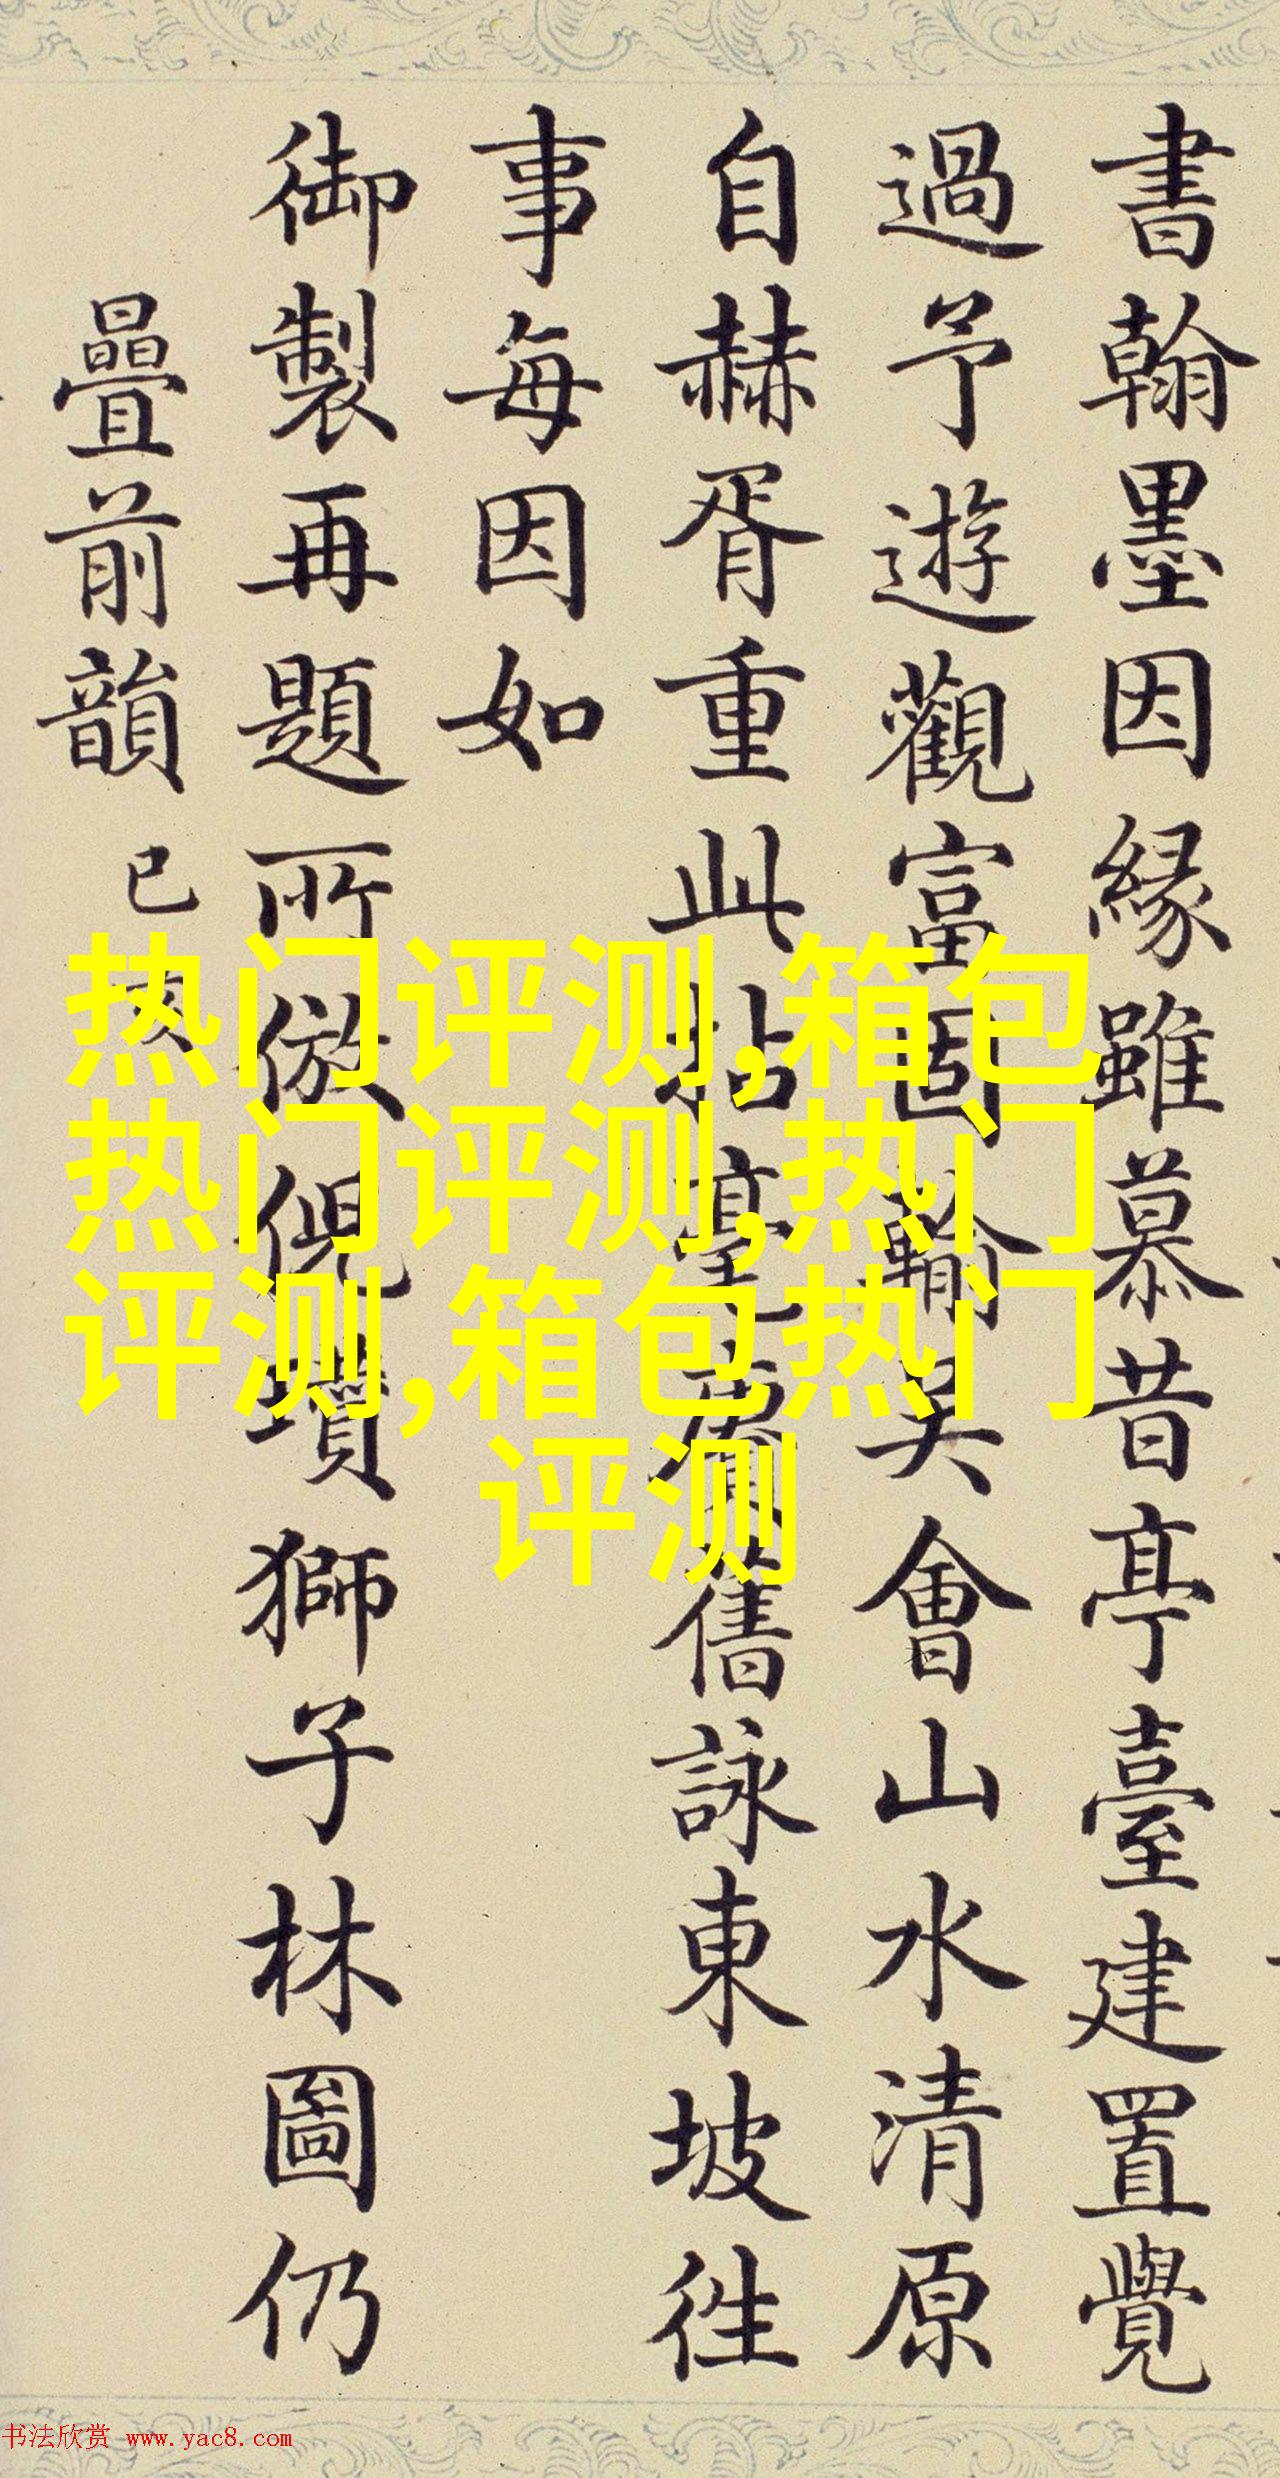 書翰墨因緣雖慕昔亭臺建置覺
過予遊觀富固輸吳會山水清原
自赫胥重此拈毫賡舊詠東坡徃
事每因如
御製再題所倣倪瓚獅子林圖仍
疊前韻 已亥
热门评测,箱包
热门评测,热门
评测,箱包热门
评测
书法欣赏 www.yac8.com